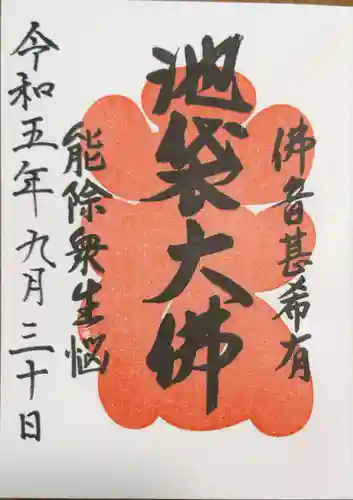 佛音甚希有
池袋大佛
能除衆生悩
令和五年九月三十日